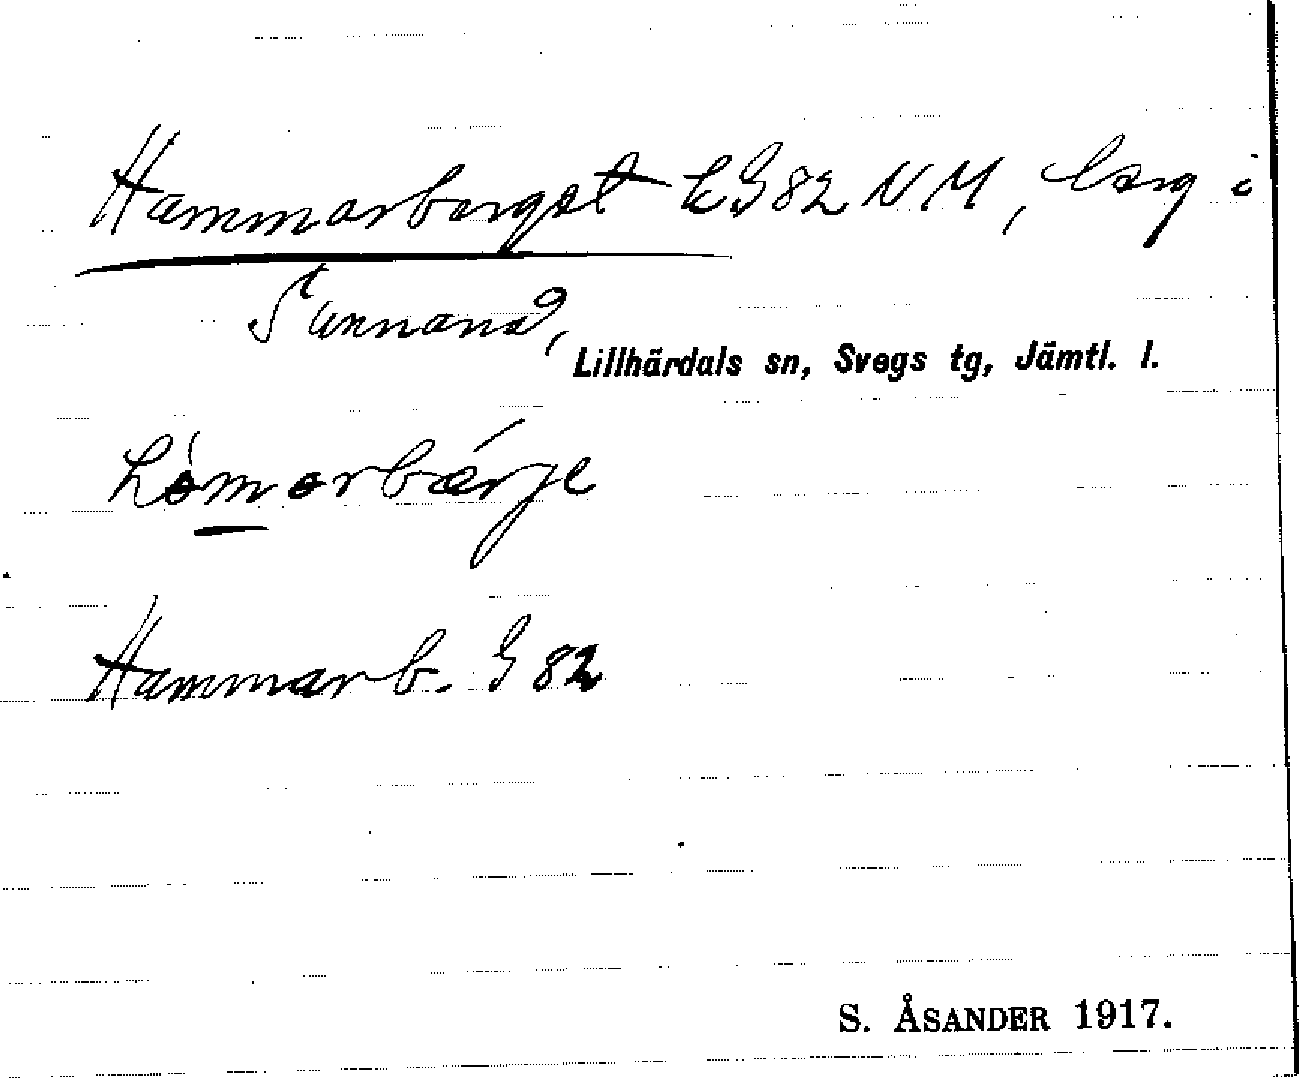 Hammarberget LG82 NM, berg i
Sunnanå,
Lillhärdals sn, Svegs tg, Jämtl. l.
Hòmorbǽrje
Hammarb. G 82
S. ÅSANDER 1917.